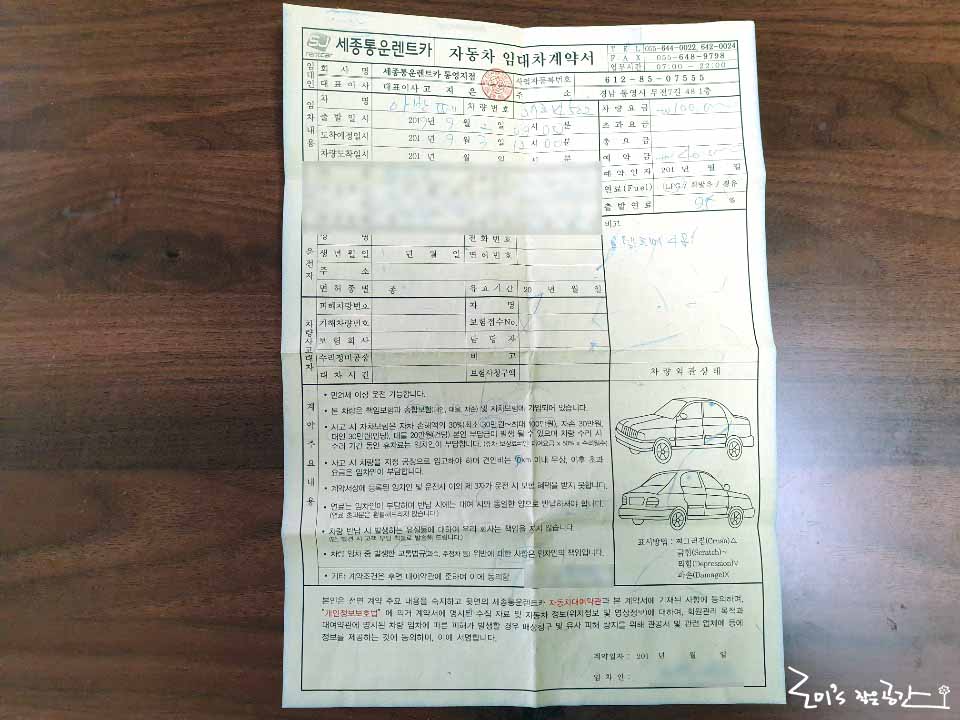 SJ rentcar 세종통운렌트카 자동차 임대차계약서
TEL 055-644-0022, 642-0024
FAX 055-648-9798
업무시간 07:00 - 22:00
임대인 회사명 세종통운렌트카 통영지점 사업자등록번호 612-85-07555
대표이사 대표이사 고지은 주소 경남 통영시 무전7길 48 1층
임차내용 차명 차량번호 차량요금
출발일시 2019년 9월 일 09시 00분 초과요금
도착예정일시 201 년 9월 일 시 00분 총요금
차량도착일시 201 년 월 일 시 분 예약금
예약일자 201 년 월 일
연료(Fuel) LPG / 휘발유 / 경유
출발연료 %
비고
운전자 성명 전화번호
생년월일 년 월 일 면허번호
주소
면허종별 종 유효기간 20 년 월 일
차량사고대차 피해차량번호 차명
가해차량번호 보험접수No.
보험회사 담당자
수리정비공장 비고
대차시간 보험사청구액
차량외관상태
계약주요내용
• 만21세 이상 운전 가능합니다.
• 본 차량은 책임보험과 종합보험(대인, 대물, 자손) 및 자차보험에 가입되어 있습니다.
• 사고 시 자차보험은 자차 손해액의 30%(최소 30만원~최대 100만원), 자손 30만원,
대인 30만원(인당), 대물 20만원(건당) 본인 부담금이 발생 될 수 있으며 차량 수리 시
수리 기간 동안 휴차료는 임차인이 부담합니다.
• 사고 시 차량을 지정 공장으로 입고해야 하며 견인비는 km 이내 무상, 이후 초과
요금은 임차인이 부담합니다.
• 계약서상에 등록된 임차인 및 운전자 이외 제 3자가 운전 시 보험 혜택을 받지 못합니다.
• 연료는 임차인이 부담하며 반납 시에는 대여 시와 동일한 양으로 반납하셔야 합니다.
(연료 초과분은 환불해드리지 않습니다.)
• 차량 반납 시 발생하는 유실물에 대하여 우리 회사는 책임을 지지 않습니다.
• 차량 임차 중 발생한 교통법규(과속, 주정차 등) 위반에 대한 사항은 임차인의 책임입니다.
• 기타 계약조건은 후면 대여약관에 준하며 이에 동의함
표시방법 : 찌그러짐(Crush)△
긁힘(Scratch)~
패임(Depression)V
파손(Damage)X
본인은 전면 계약 주요 내용을 숙지하고 뒷면의 세종통운렌트카 자동차대여약관과 본 계약서에 기재된 사항에 동의하며,
"개인정보보호법" 에 의거 계약서에 명시된 수집 자료 및 자동차 정보(위치정보 및 영상정보)에 대하여, 회원관리 목적과
대여약관에 명시된 차량 임차에 따른 피해가 발생할 경우 배상청구 및 유사 피해 방지를 위해 관공서 및 관련 업체에 등에
정보를 제공하는 것에 동의하며, 이에 서명합니다.
계약일자 : 201 년 월 일
임차인 :
로미's 작은공간